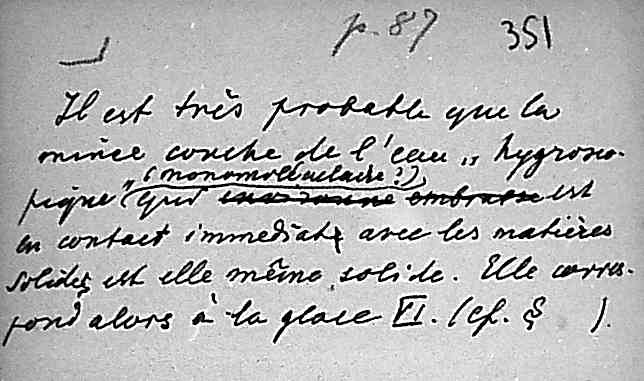 p. 87 351
Il est très probable que la
mince couche de l'eau „ hygrosco-
(monomoléculaire?),
pique" (qui environne embrasse est
en contact immediat avec les matières
solides est elle même solide. Elle corres-
pond alors à la glace VI. (cf. § ).